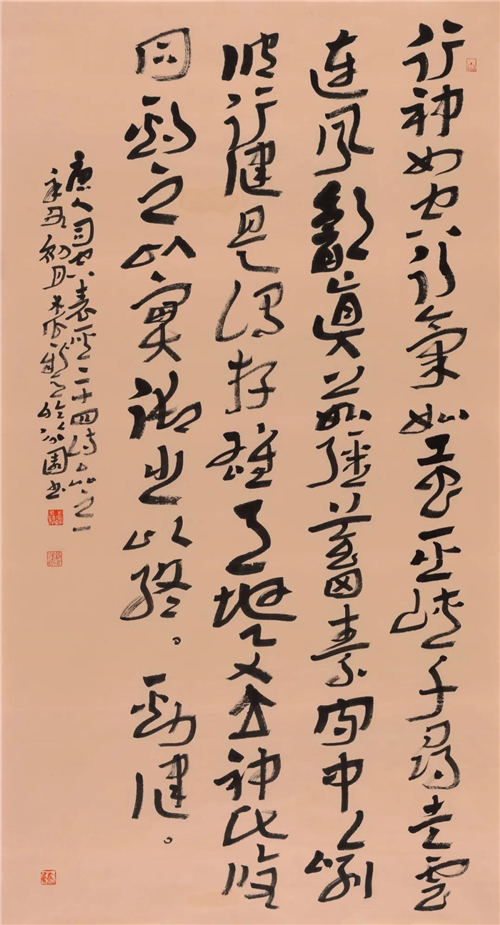 行神如空行氣如虹巫峽千尋走雲
連風飲眞茹彊蓄素守中喻
彼行健是謂存雄天地與立神化攸
同期之以實御之以終。勁健。
唐人司空表聖二十四詩品之一
辛丑初月